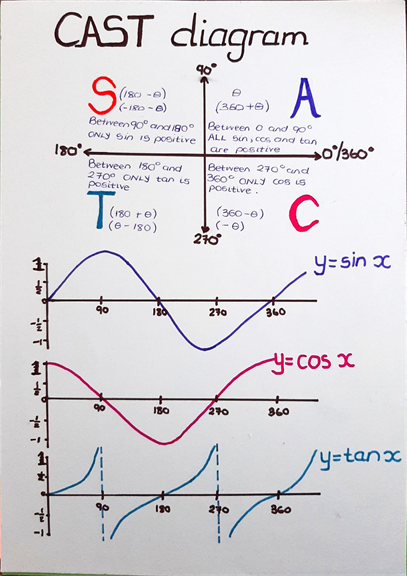 CAST diagram
90°
S (180 - θ)
(-180 - θ)
Between 90° and 180°
ONLY sin is positive
θ
(360 + θ)
A
Between 0 and 90°
ALL sin, cos and tan
are positive
180°
0°/360°
Between 180° and
270° ONLY tan is
positive
T (180 + θ)
(θ - 180)
Between 270° and
360° ONLY cos is
positive.
(360 - θ)
(-θ)
C
270°
y = sin x
1
1/2
-1/2
-1
90 180 270 360
y = cos x
1
1/2
-1/2
-1
90 180 270 360
y = tan x
1
1/2
-1/2
-1
90 180 270 360